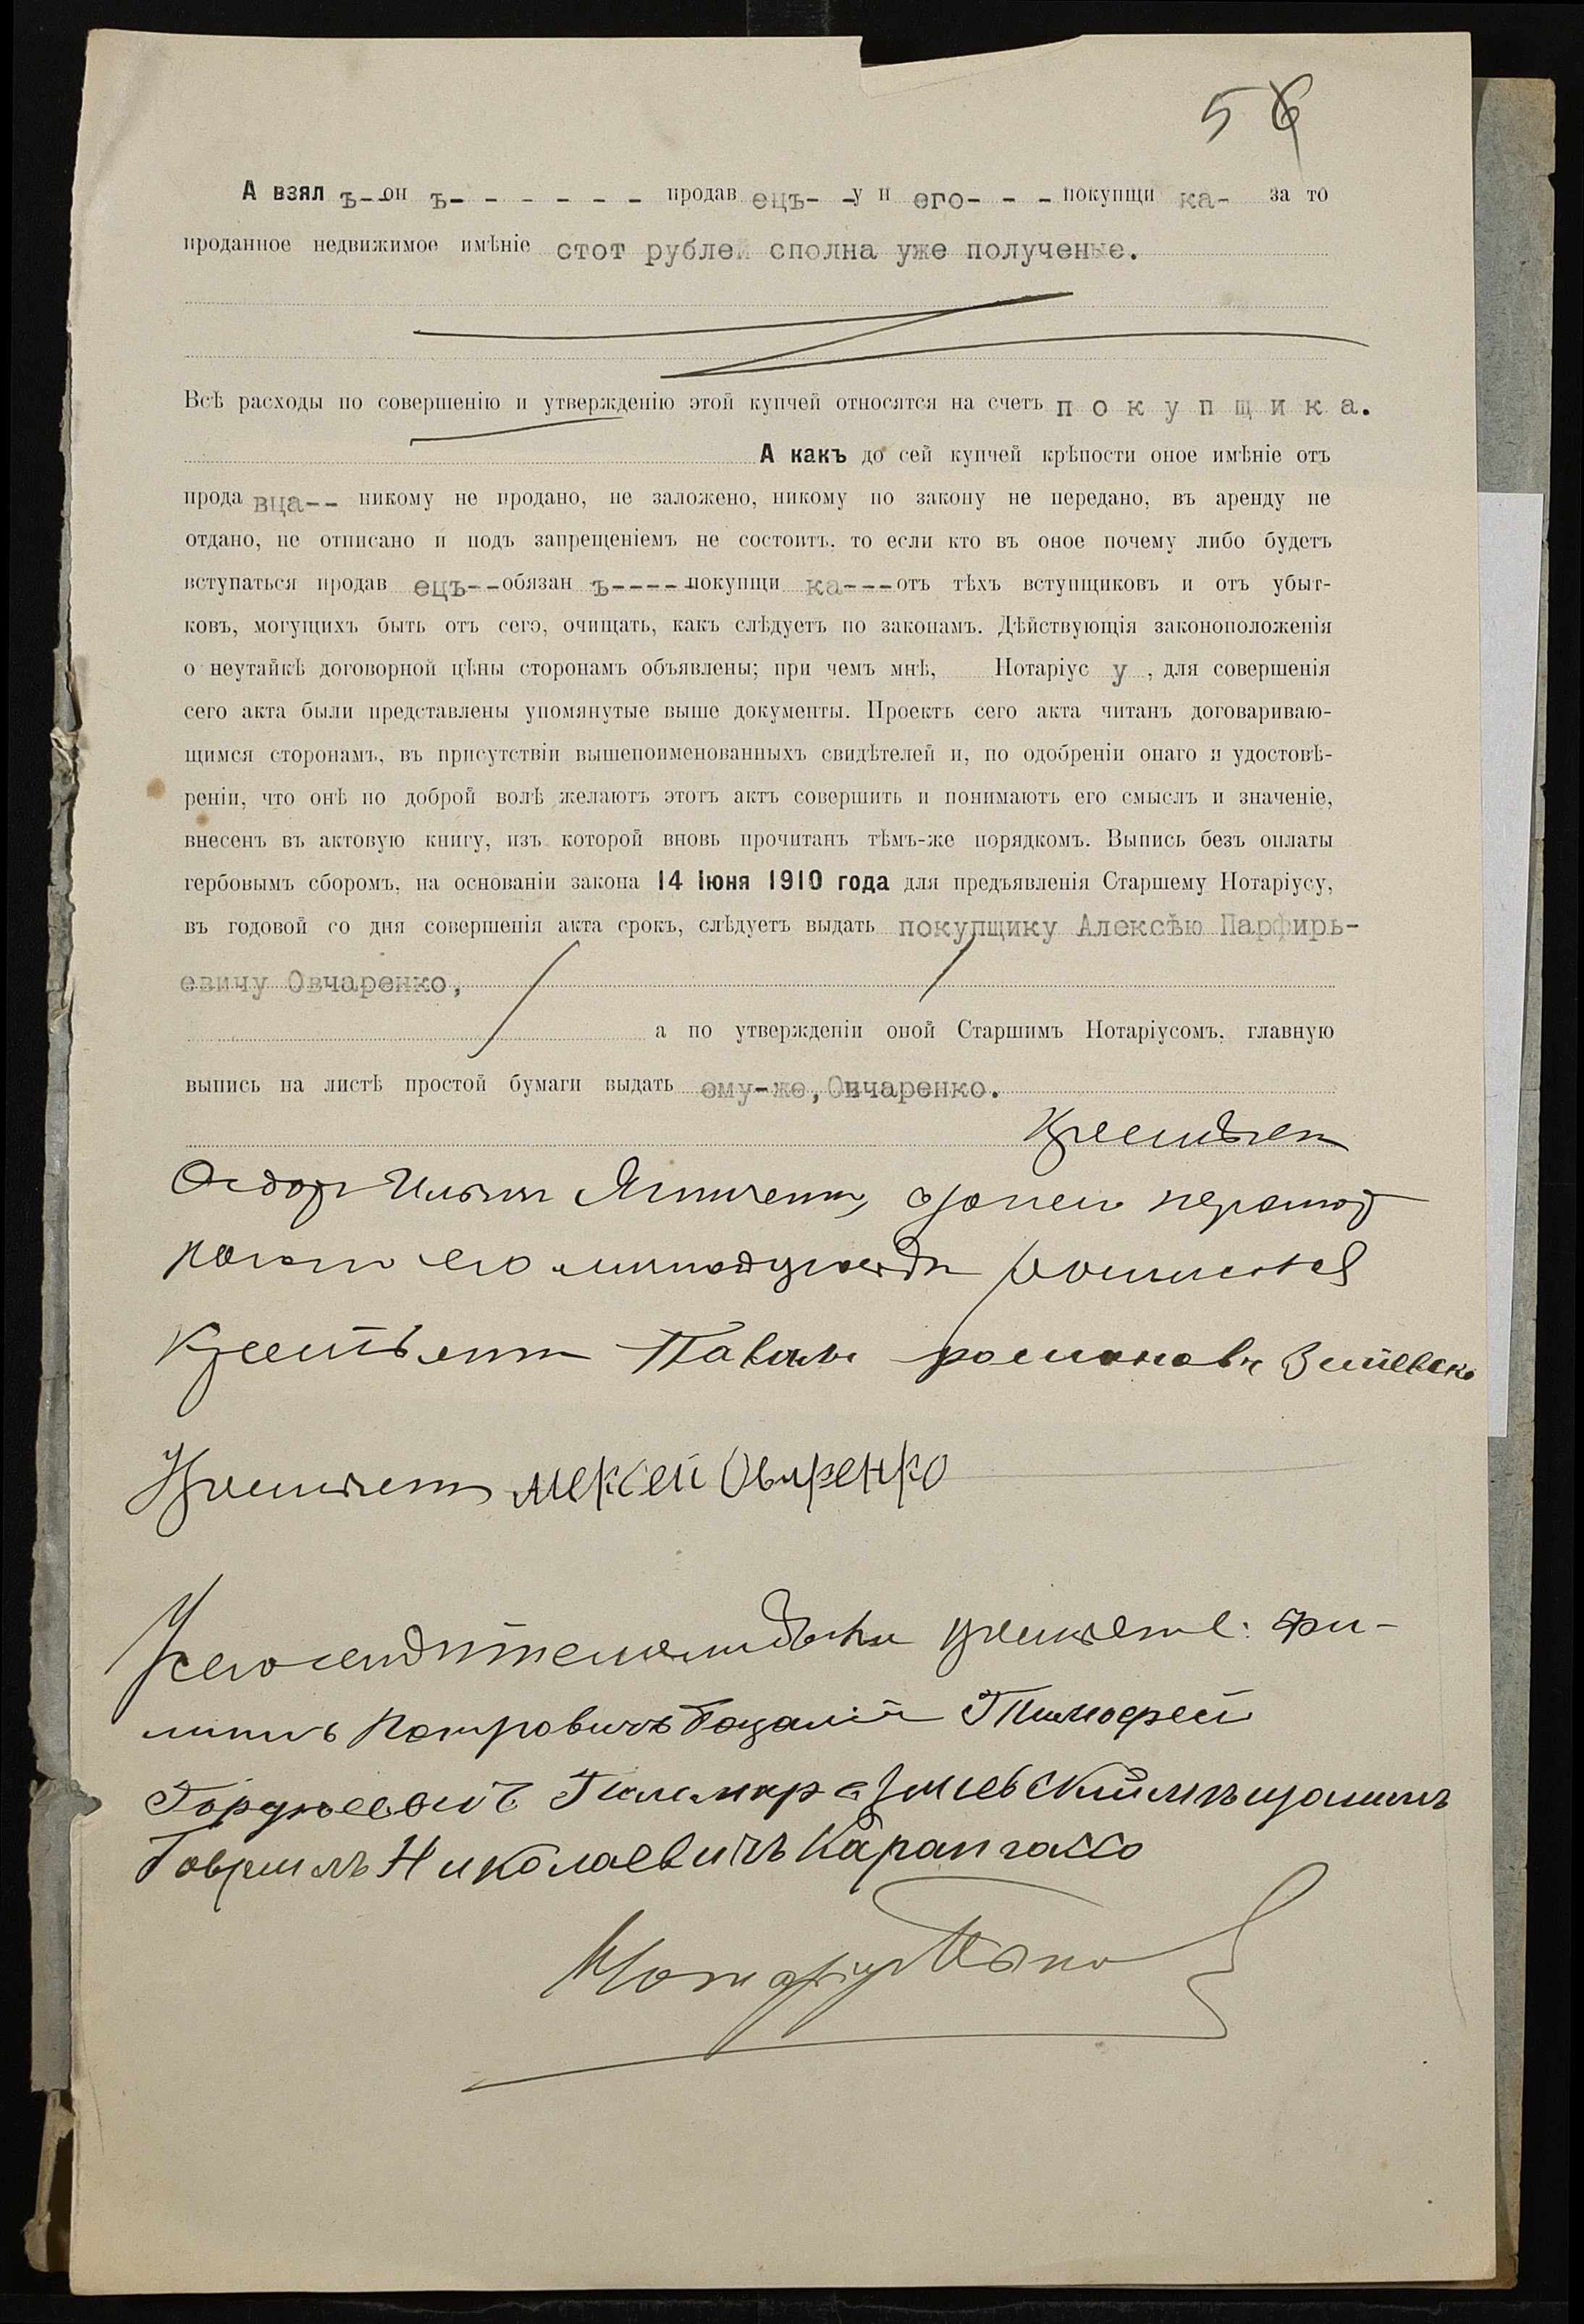 56
А взял ъ--он ъ- - - - - - - продав ецъ- -у и его- - - покупщи ка- за то
проданное недвижимое имѣніе стот рублей сполна уже полученые.
Всѣ расходы по совершенію и утвержденію этой купчей относятся на счетъ п о к у п щ и к а.
А какъ до сей купчей крѣпости оное имѣніе отъ
прода вца-- никому не продано, не заложено, никому по закону не передано, въ аренду не
отдано, не отписано и подъ запрещеніемъ не состоитъ, то если кто въ оное почему либо будетъ
вступаться продав ецъ--обязан ъ-----покупщи ка---отъ тѣхъ вступщиковъ и отъ убыт-
ковъ, могущихъ быть отъ сего, очищать, какъ слѣдуетъ по законамъ. Дѣйствующія законоположенія
о неутайкѣ договорной цѣны сторонамъ объявлены; при чемъ мнѣ, Нотаріус у , для совершенія
сего акта были представлены упомянутые выше документы. Проектъ сего акта читанъ договариваю-
щимся сторонамъ, въ присутствіи вышепоименованныхъ свидѣтелей и, по одобреніи онаго и удостовѣ-
реніи, что онѣ по доброй волѣ желаютъ этотъ актъ совершить и понимаютъ его смыслъ и значеніе,
внесенъ въ актовую книгу, изъ которой вновь прочитанъ тѣмъ-же порядкомъ. Выпись безъ оплаты
гербовымъ сборомъ, на основаніи закона 14 Іюня 1910 года для предъявленія Старшему Нотаріусу,
въ годовой со дня совершенія акта срокъ, слѣдуетъ выдать покупщику Алексѣю Парфирь-
евичу Овчаренко,
а по утвержденіи оной Старшимъ Нотаріусомъ, главную
выпись на листѣ простой бумаги выдать ему-же,Овчаренко.
Крестьян
Федор Ильин
его
Крестьянин Павел романов
Крестьянин Алексей Овчаренко
У сего свидетелями были крестьяне: Фи-
липпъ Петровичъ Тимофей
Гордѣевич Змиевский мѣщанинъ
Гаврiилъ Николаевичъ
Нотаріус